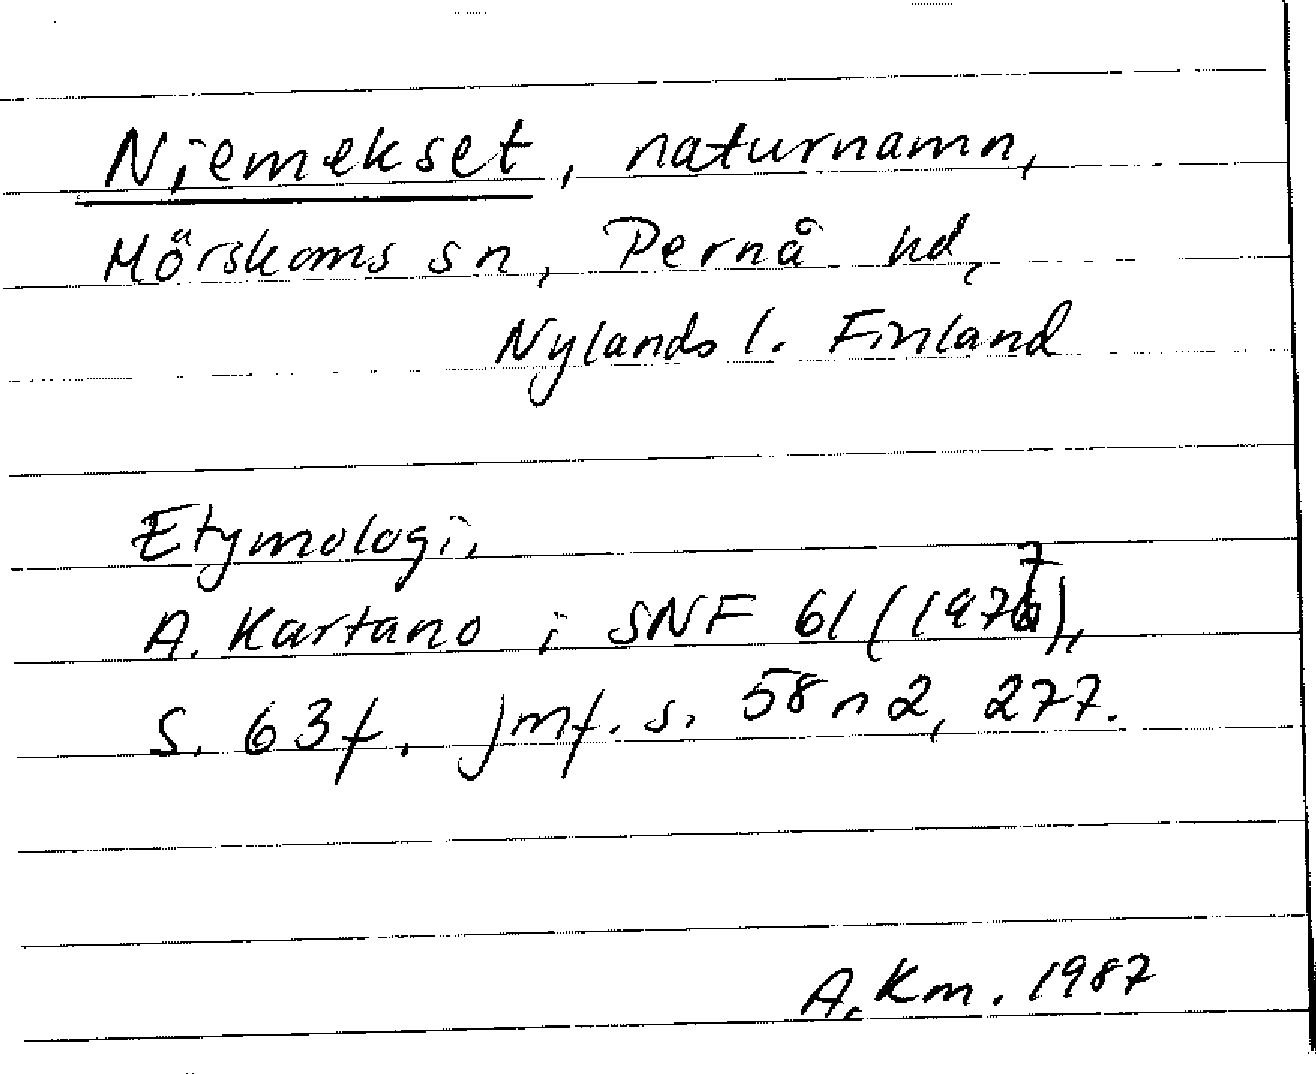 Niemekset, naturnamn,
Mörskoms sn, Pernå hd,
Nylands l. Finland
Etymologi.
A. Kartano i SNF 61 (1977),
s. 63f. jmf. s. 58 n 2, 277.
A. Km. 1987